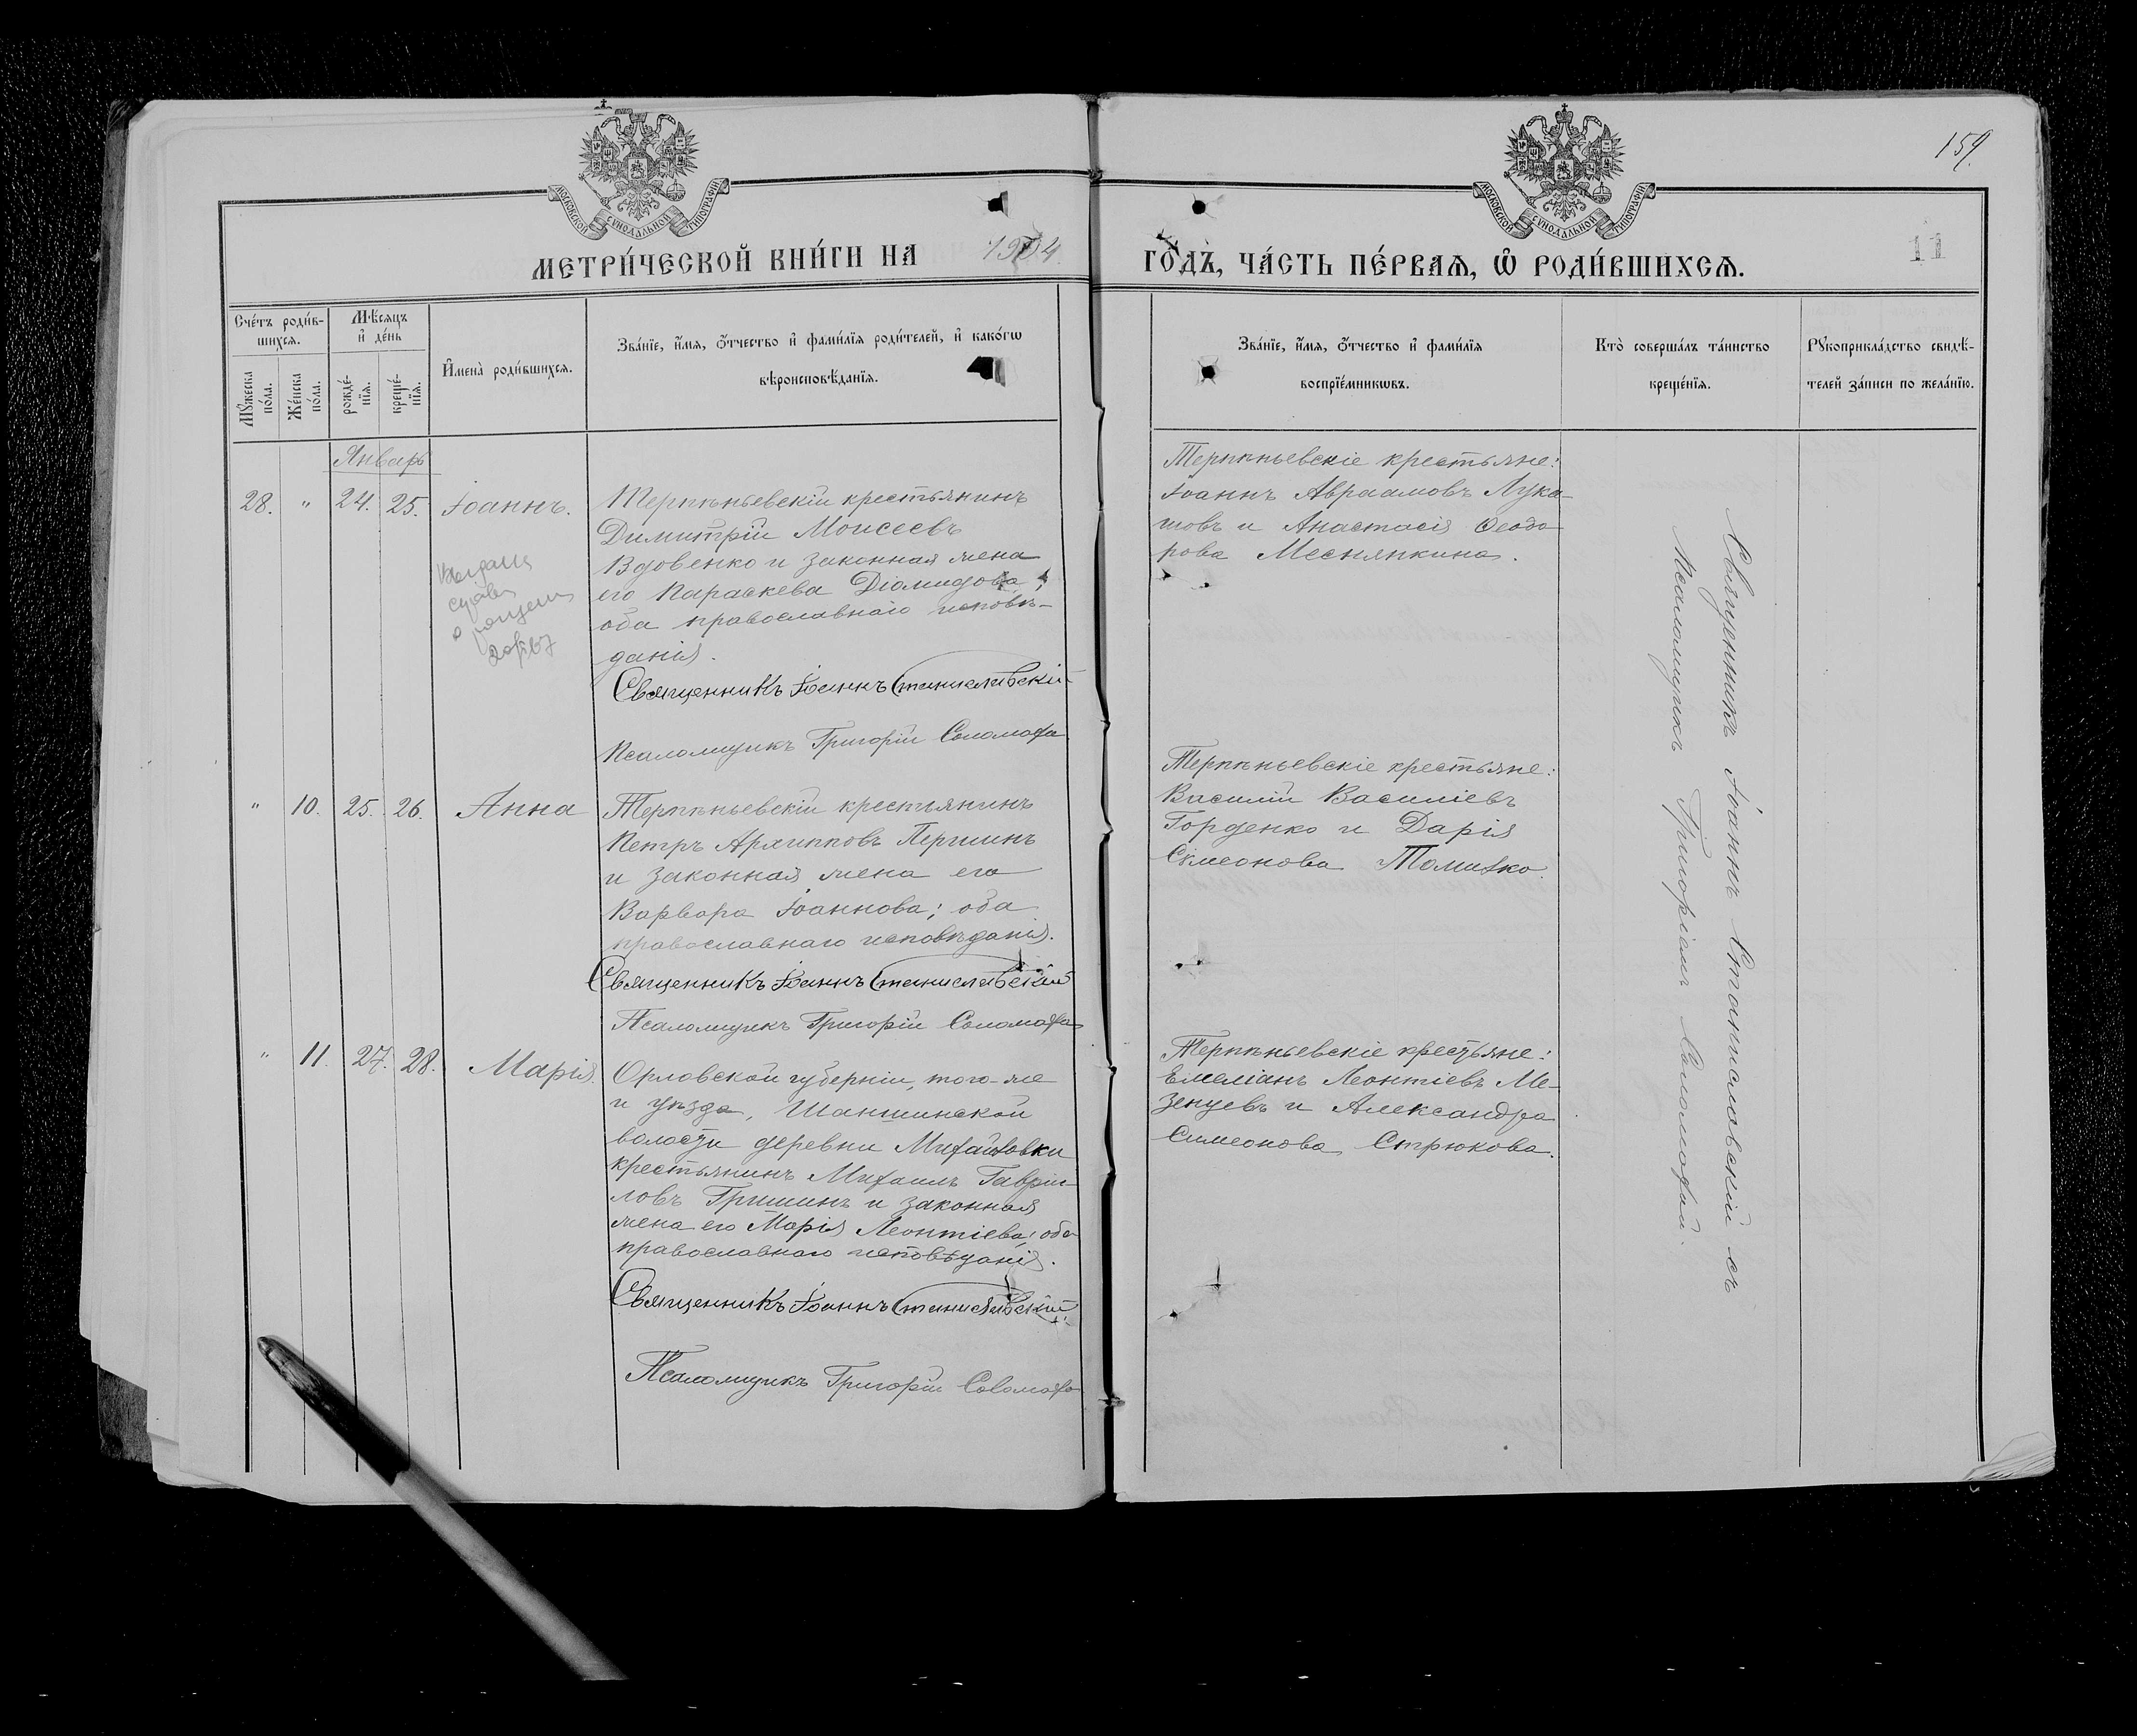 159.
МОСКОВСКОЙ СѴНОДАЛЬНОЙ ТИПОГРАФІИ
МОСКОВСКОЙ СѴНОДАЛЬНОЙ ТИПОГРАФІИ
МЕТРИ́ЧЕСКОЙ КНИ́ГИ НА 1904
ГО́ДЪ, ЧА́СТЬ ПЕ́РВАѦ, Ѡ҆ РОДИ́ВШИХСѦ.
11
Сче́тъ роди́в-
шихсѧ.
Мꙋ́жеска по́ла.
Же́нска по́ла.
Мѣ́сѧцъ и҆ де́нь
рожде́-
нїѧ.
креще́-
нїѧ.
И҆мена̀ роди́вшихсѧ.
Зва́нїе, и҆́мѧ, ѻ҆́тчество и҆ фами́лїѧ роди́телей, и҆ како́гѡ
вѣроисповѣ́данїѧ.
Зва́нїе, и҆́мѧ, ѻ҆́тчество и҆ фами́лїѧ
воспрїе́мникѡвъ.
Кто̀ соверша́лъ та́инство
креще́нїѧ.
Рꙋкоприкла́дство свидѣ́-
телей за́писи по жела́нїю.
Январь
28. " 24. 25. Іоаннъ.
Терпѣньевскій крестьянинъ
Димитрій Моисеевъ
Вдовенко и законная жена
его Параскева Діомидова;
оба православнаго исповѣ-
данія.
Священникъ Іоаннъ Станиславскій
Псаломщикъ Григорій Соломаха
Терпѣньевскіе крестьяне:
Іоаннъ Авраамовъ Лука-
шовъ и Анастасія Ѳеодо-
рова Меснянкина.
Выдана
о
" 10. 25. 26. Анна
Терпѣньевскій крестьянинъ
Петръ Архипповъ Першинъ
и законная жена его
Варвара Іоаннова; оба
православнаго исповѣданія.
Священникъ Іоаннъ Станиславскій
Псаломщикъ Григорій Соломаха
Терпѣньевскіе крестьяне:
Василій Василіевъ
Горденко и Дарія
Сѵмеонова Томилко.
" 11. 27. 28. Марія.
Орловской губерніи, того-же
и уѣзда, Шаншинской
волости деревни Михайловки
крестьянинъ Михаилъ Гаврі-
ловъ Гришинъ и законная
жена его Марія Леонтіева; оба
православнаго исповѣданія.
Священникъ Іоаннъ Станиславскій
Псаломщикъ Григорій Соломаха
Терпѣньевскіе крестьяне:
Емеліанъ Леонтіевъ Ме-
зенцевъ и Александра
Симеонова Стрюкова.
Священникъ Іоаннъ Станиславскій съ
Псаломщикъ Григоріемъ Соломахой.